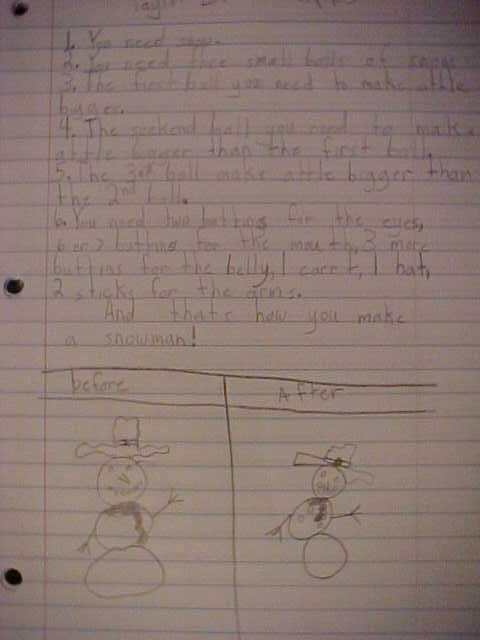 1. You need snow.
2. You need thee small balls of snow
3. The first ball you need to make attle
bigger.
4. The seekend ball you need to make
attle bigger than the first ball.
5. The 3rd ball make attle bigger than
the 2nd ball.
6. You need two buttins for the eyes,
6 or 7 buttins for the mouth, 3 more
buttins for the belly, 1 carrt, 1 hat,
2 sticks for the arms.
And that's how you make
a snowman!
before
After